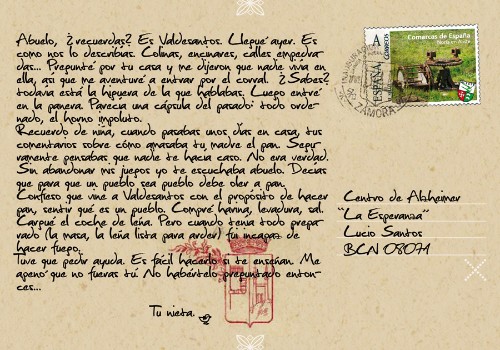 Abuelo, ¿recuerdas? Es Valdesantos. Llegué ayer. Es
como nos lo describías. Colinas, encinares, calles empedra-
das... Pregunté por tu casa y me dijeron que nadie vivía en
ella, así que me aventuré a entrar por el corral. ¿Sabes?
todavía está la higuera de la que hablabas. Luego entré
en la panera. Parecía una cápsula del pasado: todo orde-
nado, el horno impoluto.
Recuerdo de niña, cuando pasabas unos días en casa, tus
comentarios sobre cómo amasaba tu madre el pan. Segu-
ramente pensabas que nadie te hacía caso. No era verdad.
Sin abandonar mis juegos yo te escuchaba abuelo. Decías
que para que un pueblo sea pueblo debe oler a pan.
Confieso que vine a Valdesantos con el propósito de hacer
pan, sentir qué es un pueblo. Compré harina, levadura, sal.
Cargué el coche de leña. Pero cuando tenía todo prepa-
rado (la masa, la leña lista para arder) fui incapaz de
hacer fuego.
Tuve que pedir ayuda. Es fácil hacerlo si te enseñan. Me
apenó que no fueras tú. No habértelo preguntado enton-
ces...
Tu nieta.
A
CORREOS
ESPAÑA
Comarcas de España
ZAMORA
Centro de Alzheimer
"La Esperanza"
Lucio Santos
BCN 08071